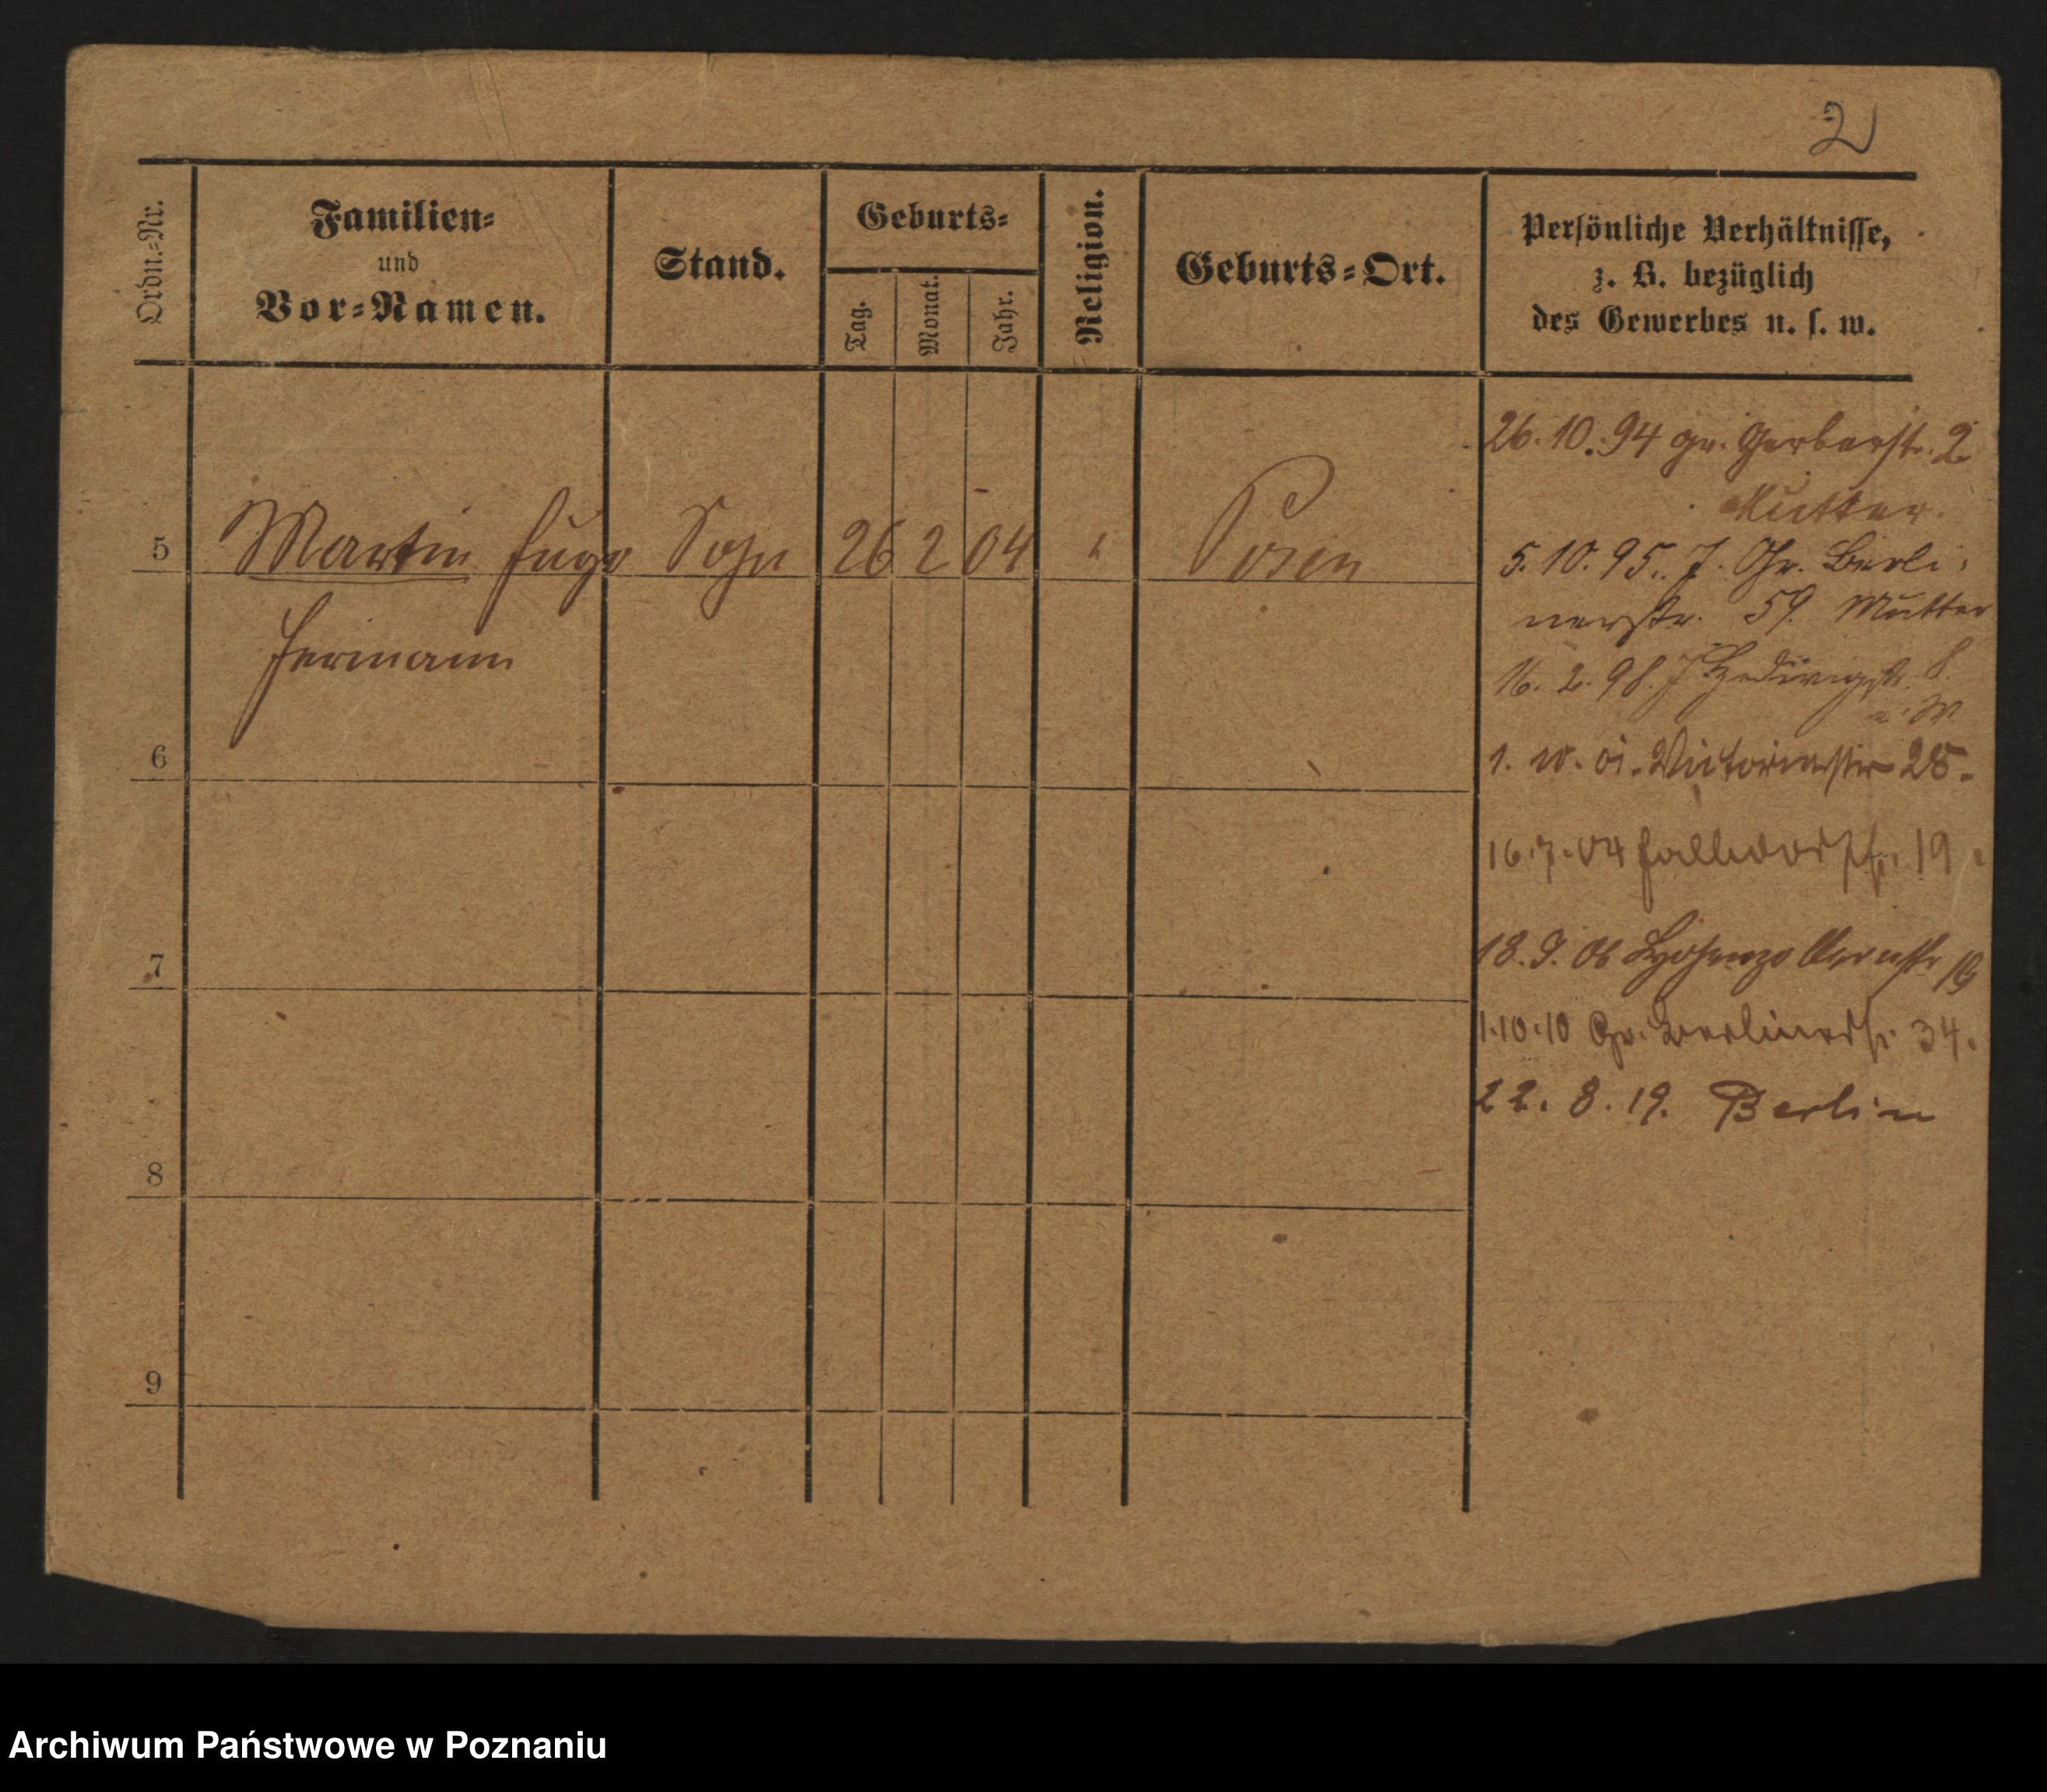 2
Ordn.=Nr.
Familien=
und
Vor=Namen.
Stand.
Geburts=
Tag.
Monat.
Jahr.
Religion.
Geburts=Ort.
Persönliche Verhältnisse,
z. B. bezüglich
des Gewerbes u. s. w.
26.10.94 gr. Gerberstr. 2
Mutter.
5 Martin Hugo Sohn 26 2 04 Posen
Hermann
5.10.95. J. Gr. Berli-
nerstr. 59. Mutter
16.2.98. J Hedwigstr. 8.
6
1.10.01. Victoriastr 25.
16.7.04 Halldorfstr. 19.
7
18.9.06 Hohenzollernstr 16
1.10.10 Gr. Berlinerstr. 34.
22. 8. 19. Berlin
8
9
Archiwum Państwowe w Poznaniu